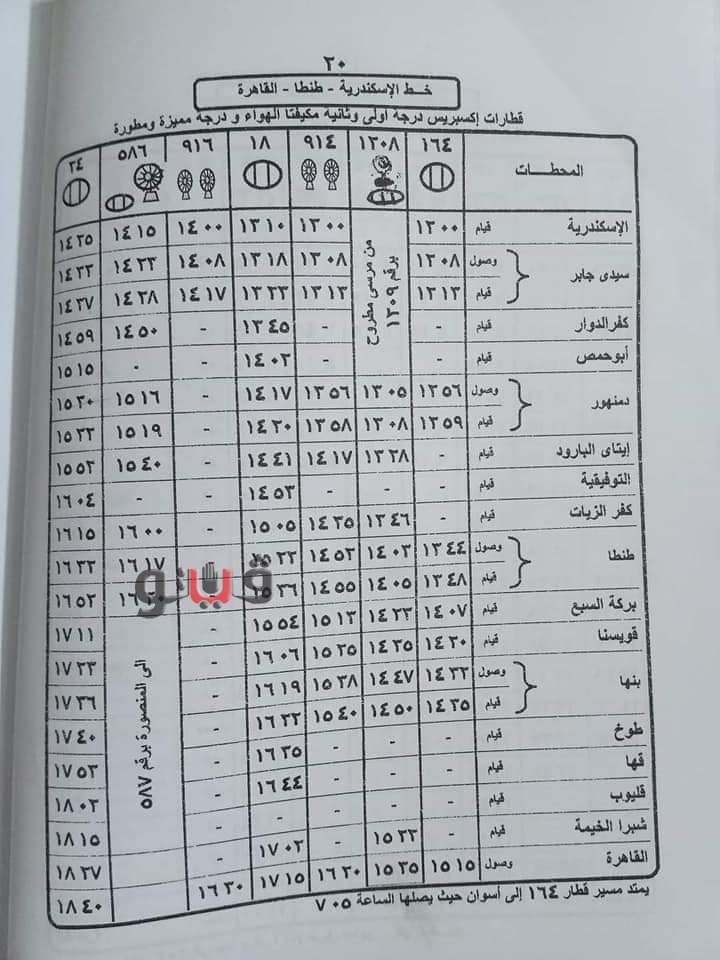 ٢٠
خط الإسكندرية - طنطا - القاهرة
قطارات إكسبريس درجة أولى وثانية مكيفتا الهواء و درجة مميزة ومطورة
المحطات ١٦٤ ١٣٠٨ ٩١٤ ١٨ ٩١٦ ٥٨٦ ٣٤
من مرسى مطروح برقم ١٣٠٩
الإسكندرية قيام ١٣ ٠٠ ١٣ ٠٠ ١٣ ١٠ ١٤ ٠٠ ١٤ ١٥ ١٤ ٢٥
سيدى جابر وصول ١٣ ٠٨ ١٣ ٠٨ ١٣ ١٨ ١٤ ٠٨ ١٤ ٢٣ ١٤ ٣٣
قيام ١٣ ١٣ ١٣ ١٣ ١٣ ٢٣ ١٤ ١٧ ١٤ ٢٨ ١٤ ٣٧
كفر الدوار قيام - - ١٣ ٤٥ - ١٤ ٥٠ ١٤ ٥٩
أبو حمص قيام - - ١٤ ٠٣ - - ١٥ ١٥
دمنهور وصول ١٣ ٥٦ ١٣ ٠٥ ١٣ ٥٦ ١٤ ١٧ - ١٥ ١٦ ١٥ ٣٠
قيام ١٣ ٥٩ ١٣ ٠٨ ١٣ ٥٨ ١٤ ٢٠ - ١٥ ١٩ ١٥ ٣٣
إيتاى البارود قيام - ١٣ ٢٨ ١٤ ١٧ ١٤ ٤١ - ١٥ ٤٠ ١٥ ٥٣
التوفيقية قيام - - - ١٤ ٥٣ - - ١٦ ٠٤
كفر الزيات قيام - ١٣ ٤٦ ١٤ ٣٥ ١٥ ٠٥ - ١٦ ٠٠ ١٦ ١٥
طنطا وصول ١٣ ٤٤ ١٤ ٠٣ ١٤ ٥٣ ١٥ ٢٣ - ١٦ ١٧ ١٦ ٣٢
قيام ١٣ ٤٨ ١٤ ٠٥ ١٤ ٥٥ ١٥ ٢٦ - ١٦ ٢٠ ١٦ ٥٢
قيتو
الى المنصورة برقم ٥٨٧
بركة السبع قيام ١٤ ٠٧ ١٤ ٢٣ ١٥ ١٣ ١٥ ٥٤ - ١٧ ١١
قويسنا قيام ١٤ ٢٠ ١٤ ٣٥ ١٥ ٢٥ ١٦ ٠٦ - ١٧ ٢٣
بنها وصول ١٤ ٣٢ ١٤ ٤٧ ١٥ ٣٨ ١٦ ١٩ - ١٧ ٣٦
قيام ١٤ ٣٥ ١٤ ٥٠ ١٥ ٤٠ ١٦ ٢٢ - ١٧ ٤٠
طوخ قيام - - - ١٦ ٣٥ - ١٧ ٥٣
قها قيام - - - ١٦ ٤٤ - ١٨ ٠٣
قليوب قيام - - - - - ١٨ ١٥
شبرا الخيمة قيام - ١٥ ٢٢ - ١٧ ٠٢ - ١٨ ٢٧
القاهرة وصول ١٥ ١٥ ١٥ ٣٥ ١٦ ٢٠ ١٧ ١٥ ١٦ ٣٠ ١٨ ٤٠
يمتد مسير قطار ١٦٤ إلى أسوان حيث يصلها الساعة ٠٥ ٧